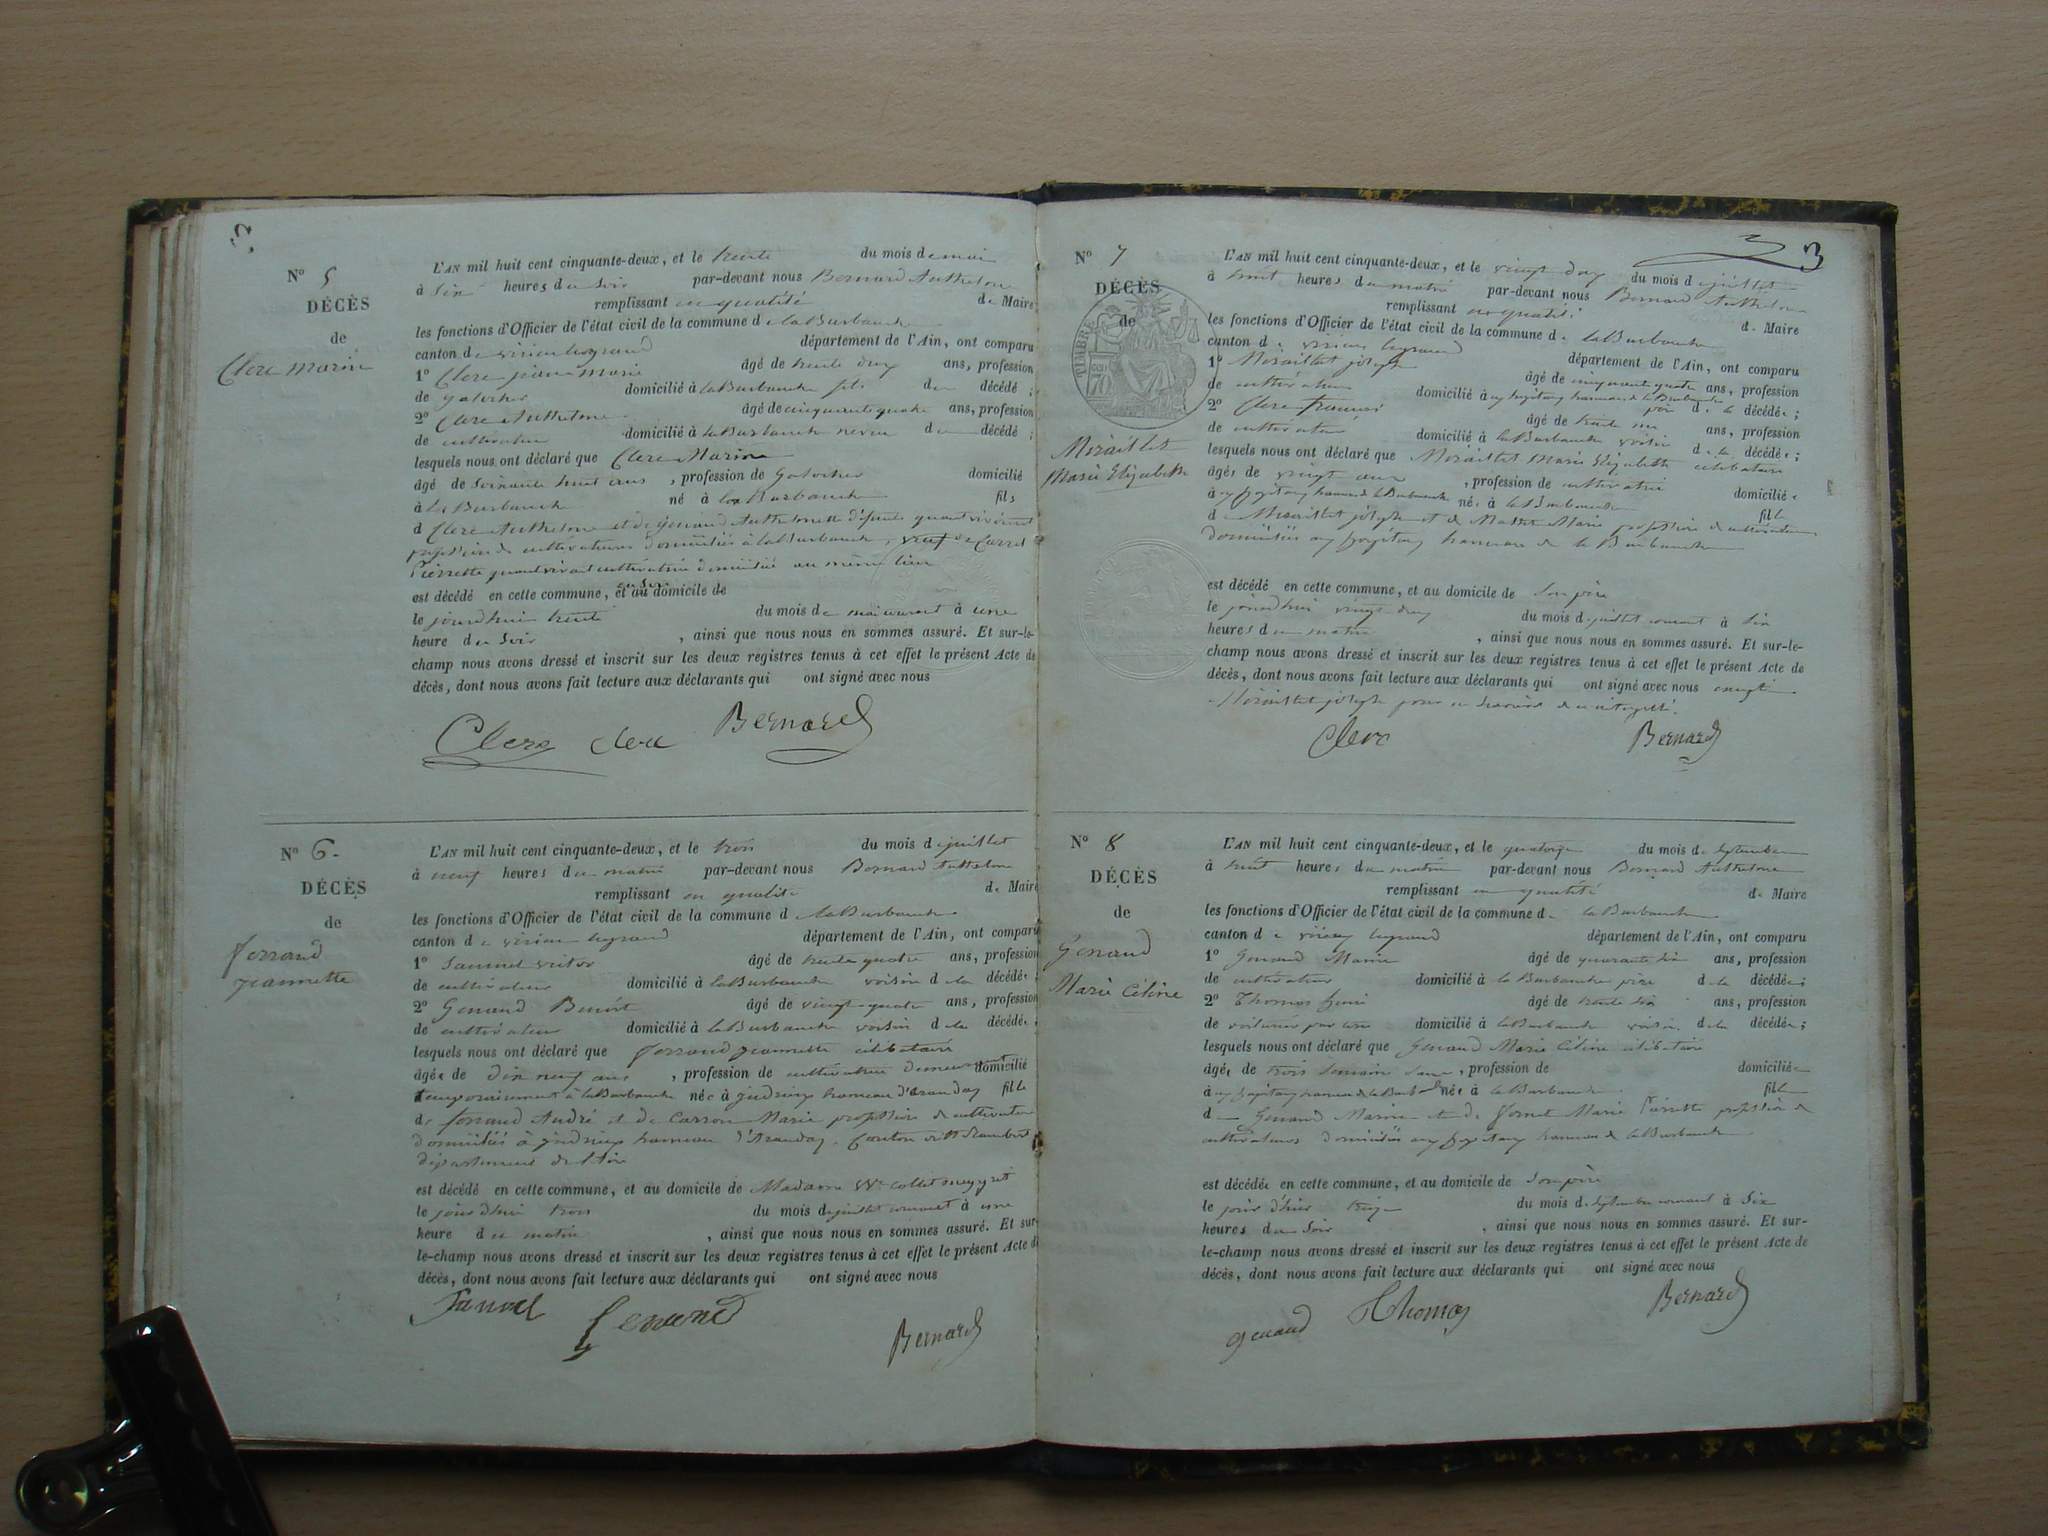 Nº 5
DÉCÈS
de
Clerc Marin
L'AN mil huit cent cinquante-deux, et le trente du mois de mai
à six heures du soir par-devant nous Bernard Anthelme
remplissant en qualité de Maire
les fonctions d'Officier de l'état civil de la commune de la Burbanche
canton de virieu legrand département de l'Ain, ont comparu
1º Clerc jean marie âgé de trente deux ans, profession
de galocher domicilié à la Burbanche fils du décédé ;
2º Clerc Anthelme âgé de cinquante quatre ans, profession
de cultivateur domicilié à la Burbanche neveu du décédé ;
lesquels nous ont déclaré que Clerc Marin
âgé de soixante huit ans, profession de galocher domicilié
à la Burbanche né à la Burbanche fils
d Clerc Anthelme et de Genand Anthelmette défunts quand vivaient
profession de cultivateurs domiciliés à la Burbanche, veuf de Carrel
Pierrette quand vivait cultivatrice domiciliée au même lieu
est décédé en cette commune, et au domicile de
le jourdhui trente du mois de mai courant à une
heure du soir, ainsi que nous nous en sommes assuré. Et sur-le-
champ nous avons dressé et inscrit sur les deux registres tenus à cet effet le présent Acte de
décès, dont nous avons fait lecture aux déclarants qui ont signé avec nous
Clerc clerc Bernard
Nº 6.
DÉCÈS
de
ferrand
jeannette
L'AN mil huit cent cinquante-deux, et le trois du mois de juillet
à neuf heures du matin par-devant nous Bernard Anthelme
remplissant en qualité de Maire
les fonctions d'Officier de l'état civil de la commune d la Burbanche
canton de virieu legrand département de l'Ain, ont comparu
1º Samuel victor âgé de trente quatre ans, profession
de cultivateur domicilié à la Burbanche voisin de la décédée ;
2º Genand Benoit âgé de vingt-quatre ans, profession
de cultivateur domicilié à la Burbanche voisin de la décédée,
lesquels nous ont déclaré que ferrand jeannette célibataire
âgée de dix neuf ans, profession de cultivatrice demeurant domicilié
temporairement à la Burbanche née à indrieux hameau d'Arandas fille
de ferrand André et de Carron Marie profession de cultivateurs
domiciliés à indrieux hameau d'Arandas. Canton de St Rambert
département de l'Ain
est décédé en cette commune, et au domicile de Madame Ve collet meygret
le jourdhui trois du mois de juillet courant à une
heure du matin, ainsi que nous nous en sommes assuré. Et sur-
le-champ nous avons dressé et inscrit sur les deux registres tenus à cet effet le présent Acte de
décès, dont nous avons fait lecture aux déclarants qui ont signé avec nous
Samuel Genand Bernard
3
Nº 7
DÉCÈS
de
TIMBRE
Miraillet
Marie Elizabeth
L'AN mil huit cent cinquante-deux, et le vingt deux du mois de juillet
à huit heures du matin par-devant nous Bernard Anthelme
remplissant en qualité de Maire
les fonctions d'Officier de l'état civil de la commune de la Burbanche
canton de virieu legrand département de l'Ain, ont comparu
1º Miraillet joseph âgé de cinquante quatre ans, profession
de cultivateur domicilié à hameau de la Burbanche père de la décédée ;
2º Clerc françois âgé de trente ans, profession
de cultivateur domicilié à la Burbanche voisin de la décédée ;
lesquels nous ont déclaré que Miraillet Marie Elizabeth célibataire
âgée de vingt ans, profession de cultivatrice domiciliée
à hameau de la Burbanche née à la Burbanche fille
de Miraillet joseph et de Marie profession de cultivateurs
domiciliés hameau de la Burbanche
est décédé en cette commune, et au domicile de son père
le jourdhui vingt-deux du mois de juillet courant à six
heures du matin, ainsi que nous nous en sommes assuré. Et sur-le-
champ nous avons dressé et inscrit sur les deux registres tenus à cet effet le présent Acte de
décès, dont nous avons fait lecture aux déclarants qui ont signé avec nous excepté
Miraillet joseph pour ne savoir de ce interpellé.
Clerc Bernard
Nº 8
DÉCÈS
de
Genand
Marie Céline
L'AN mil huit cent cinquante-deux, et le quatorze du mois de septembre
à huit heures du matin par-devant nous Bernard Anthelme
remplissant en qualité de Maire
les fonctions d'Officier de l'état civil de la commune de la Burbanche
canton de virieu legrand département de l'Ain, ont comparu
1º Genand Marin âgé de quarante six ans, profession
de cultivateur domicilié à la Burbanche père de la décédée ;
2º Thomas âgé de trente six ans, profession
de voiturier par eau domicilié à la Burbanche voisin de la décédée ;
lesquels nous ont déclaré que Genand Marie Céline célibataire
âgée de trois semaine sans, profession de domiciliée
à hameau de la Burb née à la Burbanche fille
de Genand Marin et de Marie Pierrette profession de
cultivateurs domiciliés hameau de la Burbanche
est décédée en cette commune, et au domicile de son père
le jour d'hier treize du mois de septembre courant à six
heures du soir, ainsi que nous nous en sommes assuré. Et sur-
le-champ nous avons dressé et inscrit sur les deux registres tenus à cet effet le présent Acte de
décès, dont nous avons fait lecture aux déclarants qui ont signé avec nous
genand Thomas Bernard